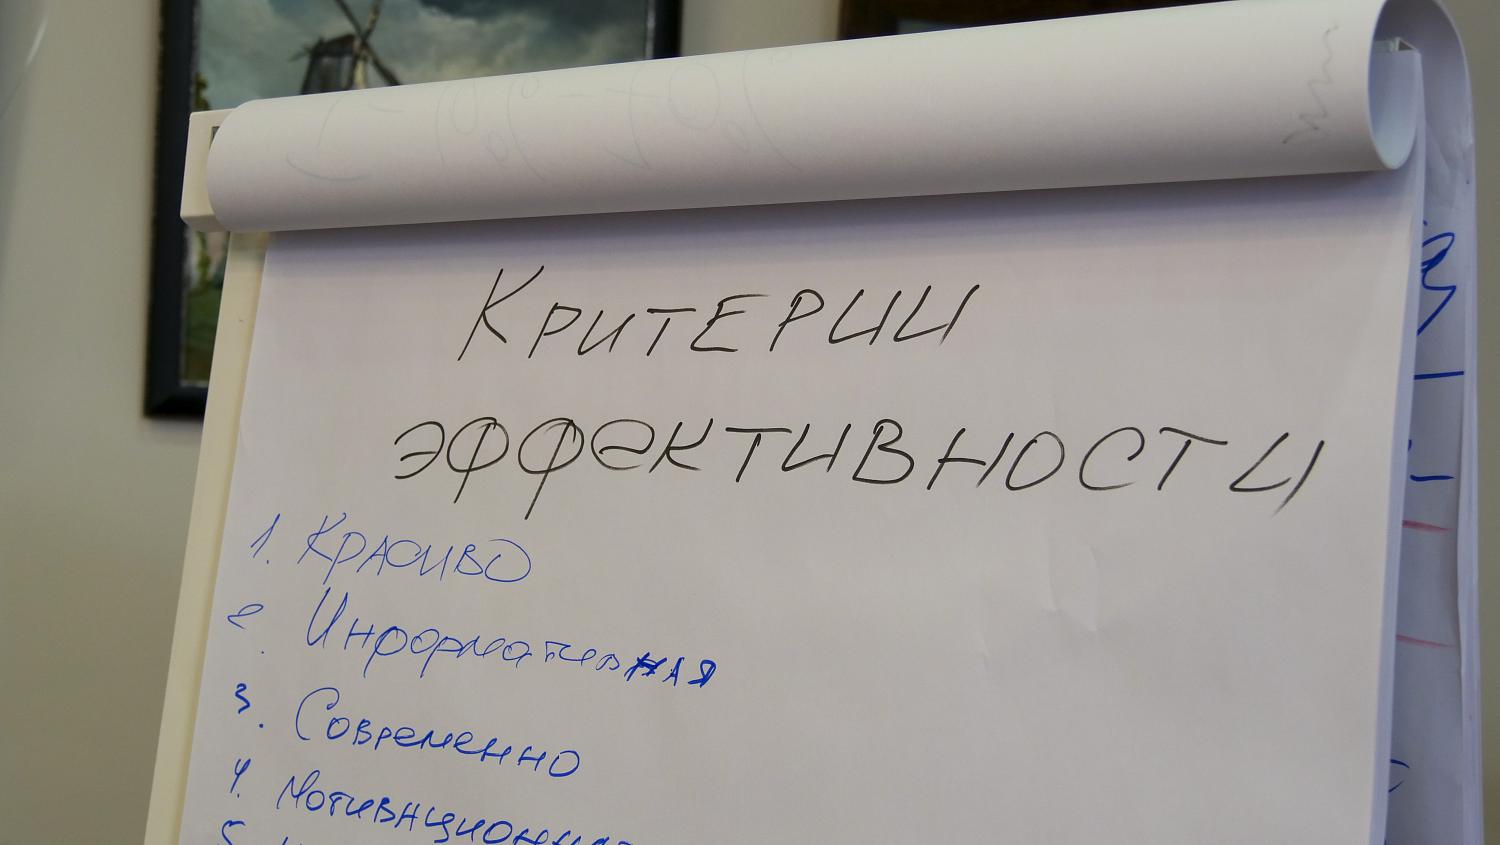 Критерии
эффективности
1. Красиво
2. Информативная
3. Современно
4. Мотивационная
5.